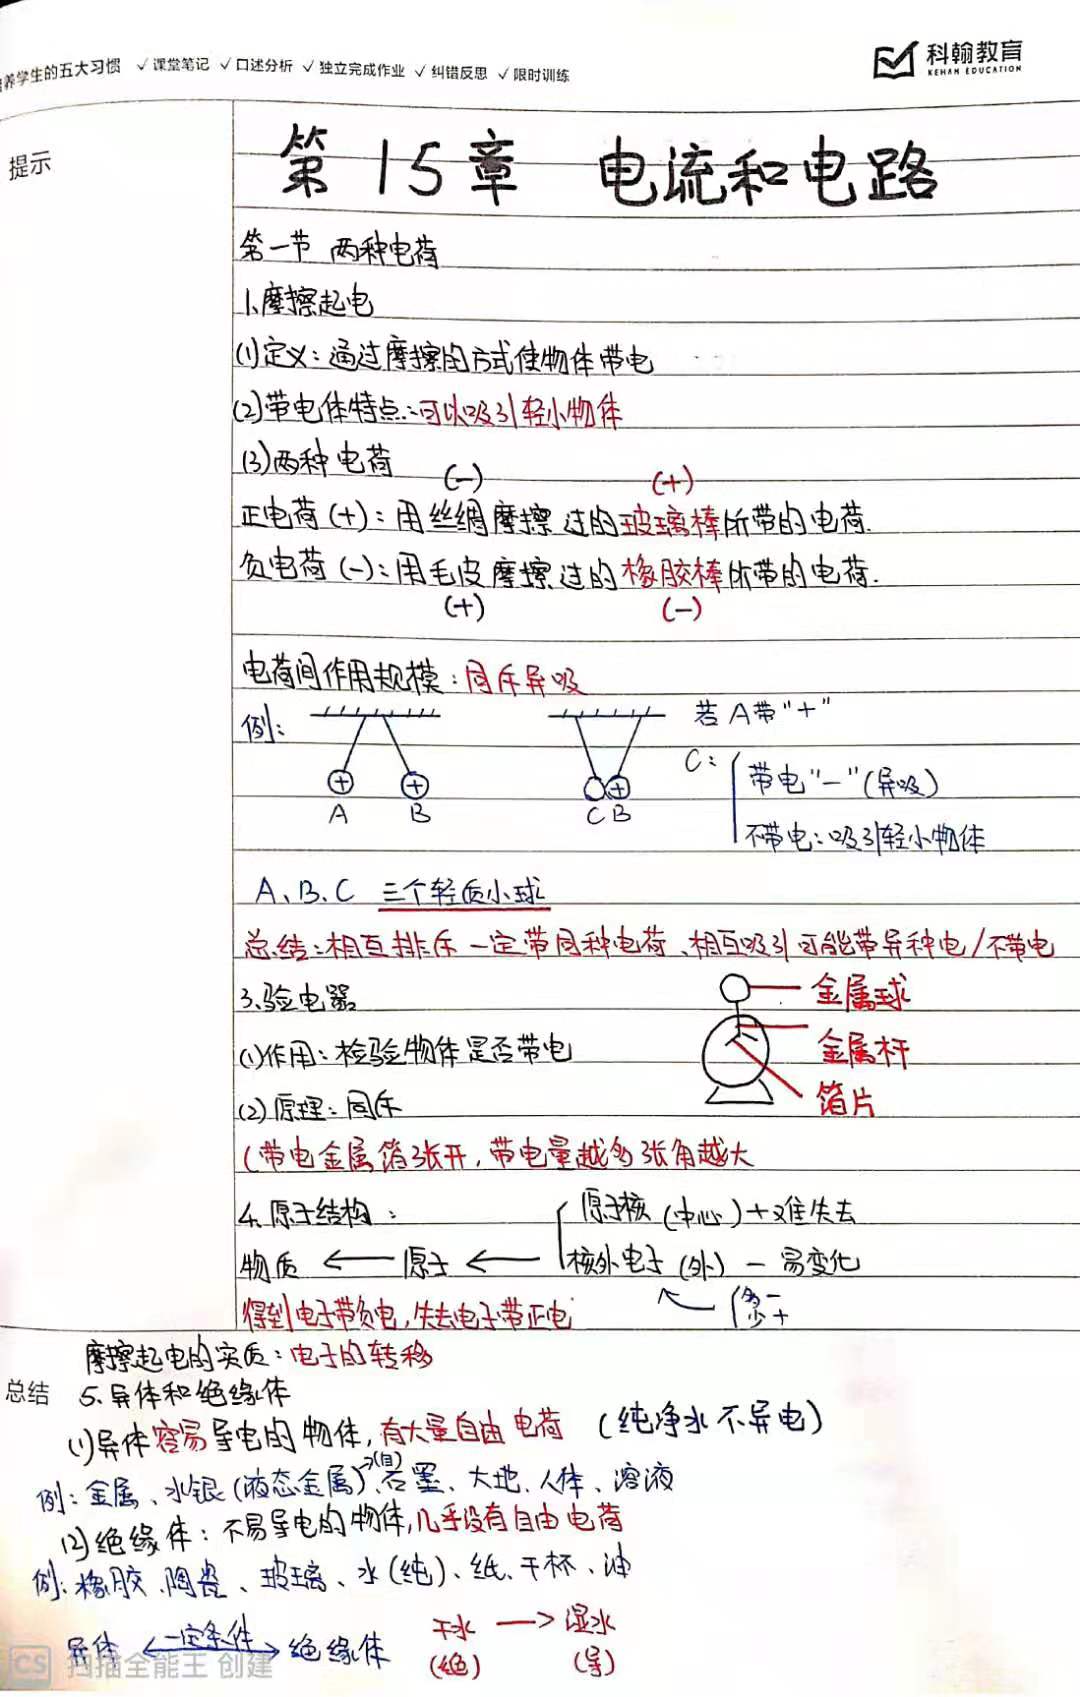 养学生的五大习惯 ✓课堂笔记 ✓口述分析 ✓独立完成作业 ✓纠错反思 ✓限时训练
科翰教育
KEHAN EDUCATION
提示
第15章 电流和电路
第一节 两种电荷
1.摩擦起电
(1)定义:通过摩擦的方式使物体带电
(2)带电体特点:可以吸引轻小物体
(3)两种电荷
(-) (+)
正电荷(+):用丝绸摩擦过的玻璃棒所带的电荷.
负电荷(-):用毛皮摩擦过的橡胶棒所带的电荷.
(+) (-)
电荷间作用规模:同斥异吸
例:
若A带"+"
C:
带电"-"(异吸)
不带电:吸引轻小物体
+ + +
A B C B
A、B、C 三个轻质小球
总结:相互排斥一定带同种电荷、相互吸引可能带异种电/不带电
3.验电器
金属球
金属杆
箔片
(1)作用:检验物体是否带电
(2)原理:同斥
(带电金属箔张开,带电量越多张角越大
4.原子结构:
原子核(中心)+难失去
物质 ← 原子 ←
核外电子(外) - 易变化
多 -
少 +
得到电子带负电,失去电子带正电
摩擦起电的实质:电子的转移
总结
5.导体和绝缘体
(1)导体容易导电的物体,有大量自由电荷 (纯净水不导电)
例:金属、水银(液态金属)、石墨、大地、人体、溶液
(2)绝缘体:不易导电的物体,几乎没有自由电荷
例:橡胶、陶瓷、玻璃、水(纯)、纸、干杯、油
导体 ←一定条件→ 绝缘体
干水 → 湿水
(绝) (导)
CS 扫描全能王 创建